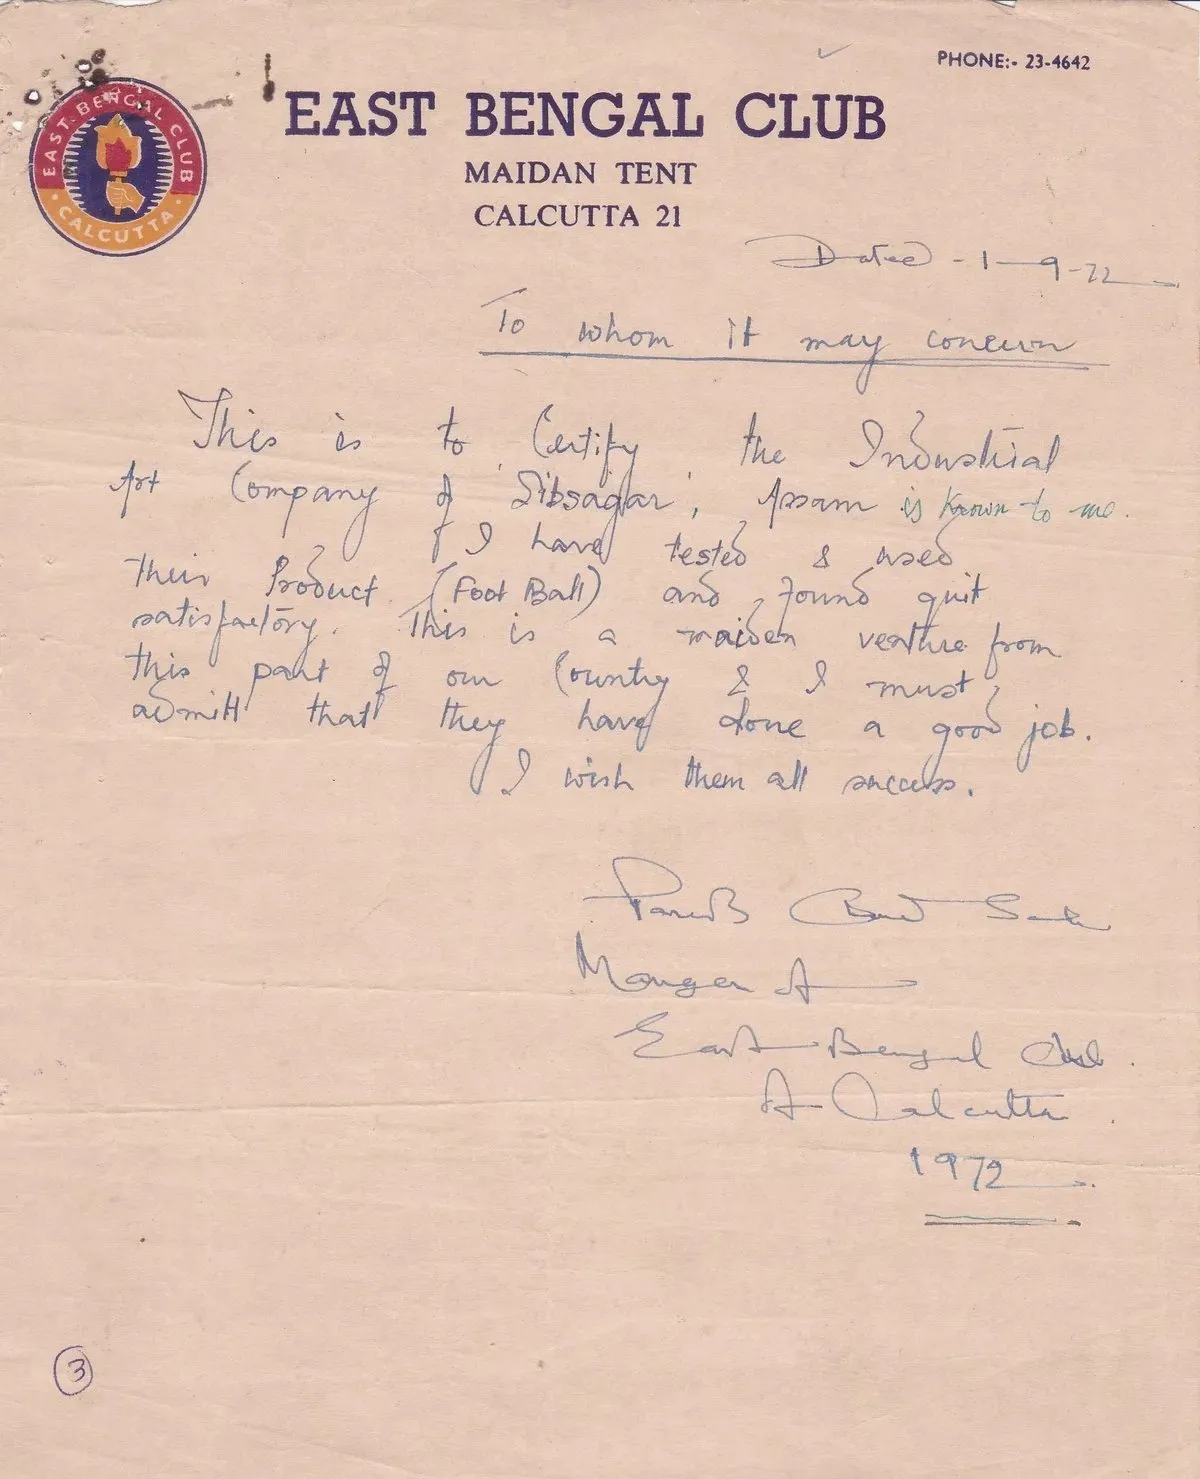 PHONE:- 23-4642
EAST BENGAL CLUB
EAST BENGAL CLUB
· CALCUTTA ·
MAIDAN TENT
CALCUTTA 21
Dated - 1-9-72
To whom it may concern
This is to Certify the Industrial
Art Company of Sibsagar, Assam is known to me.
I have tested & used
their Product (Foot Ball) and found quit
satisfactory. This is a maiden venture from
this part of our Country & I must,
admitt that they have done a good job.
I wish them all success.
Manger
East Bengal Club.
Calcutta
1972
3